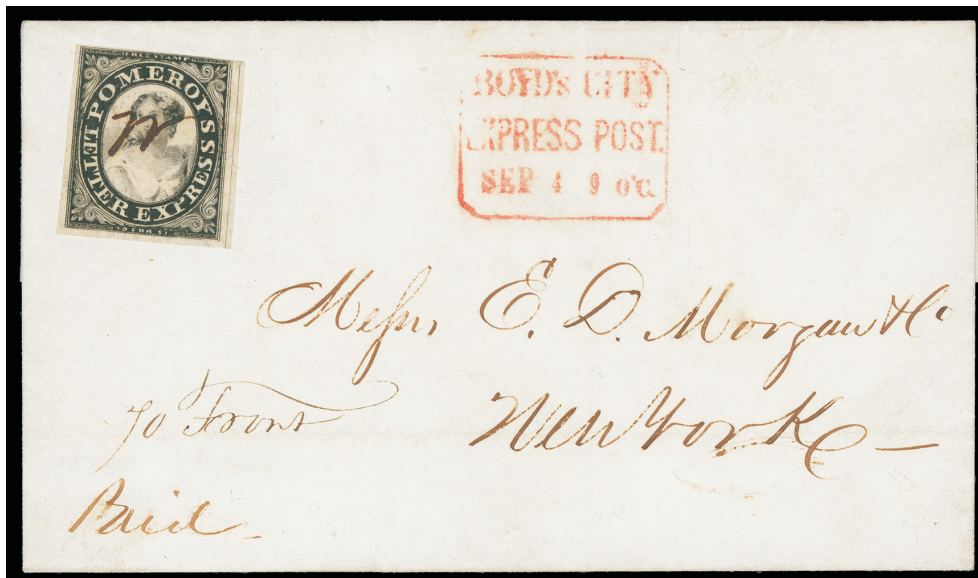 FREE STAMP
POMEROY'S LETTER EXPRESS
20 FOR $1
BOYD's CITY
EXPRESS POST.
SEP 4 9 O'C.
Messrs E. D. Morgan & Co
New York
70 Front
Paid